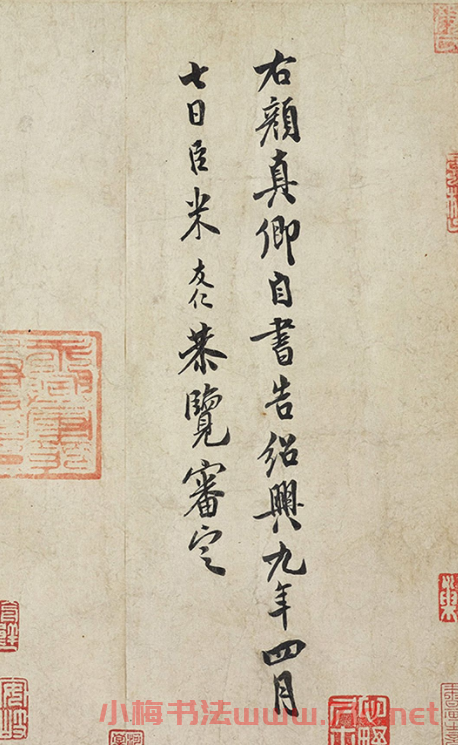 右顏真卿自書告紹興九年四月
七日臣米友仁恭覽審定
小梅书法www.
.net